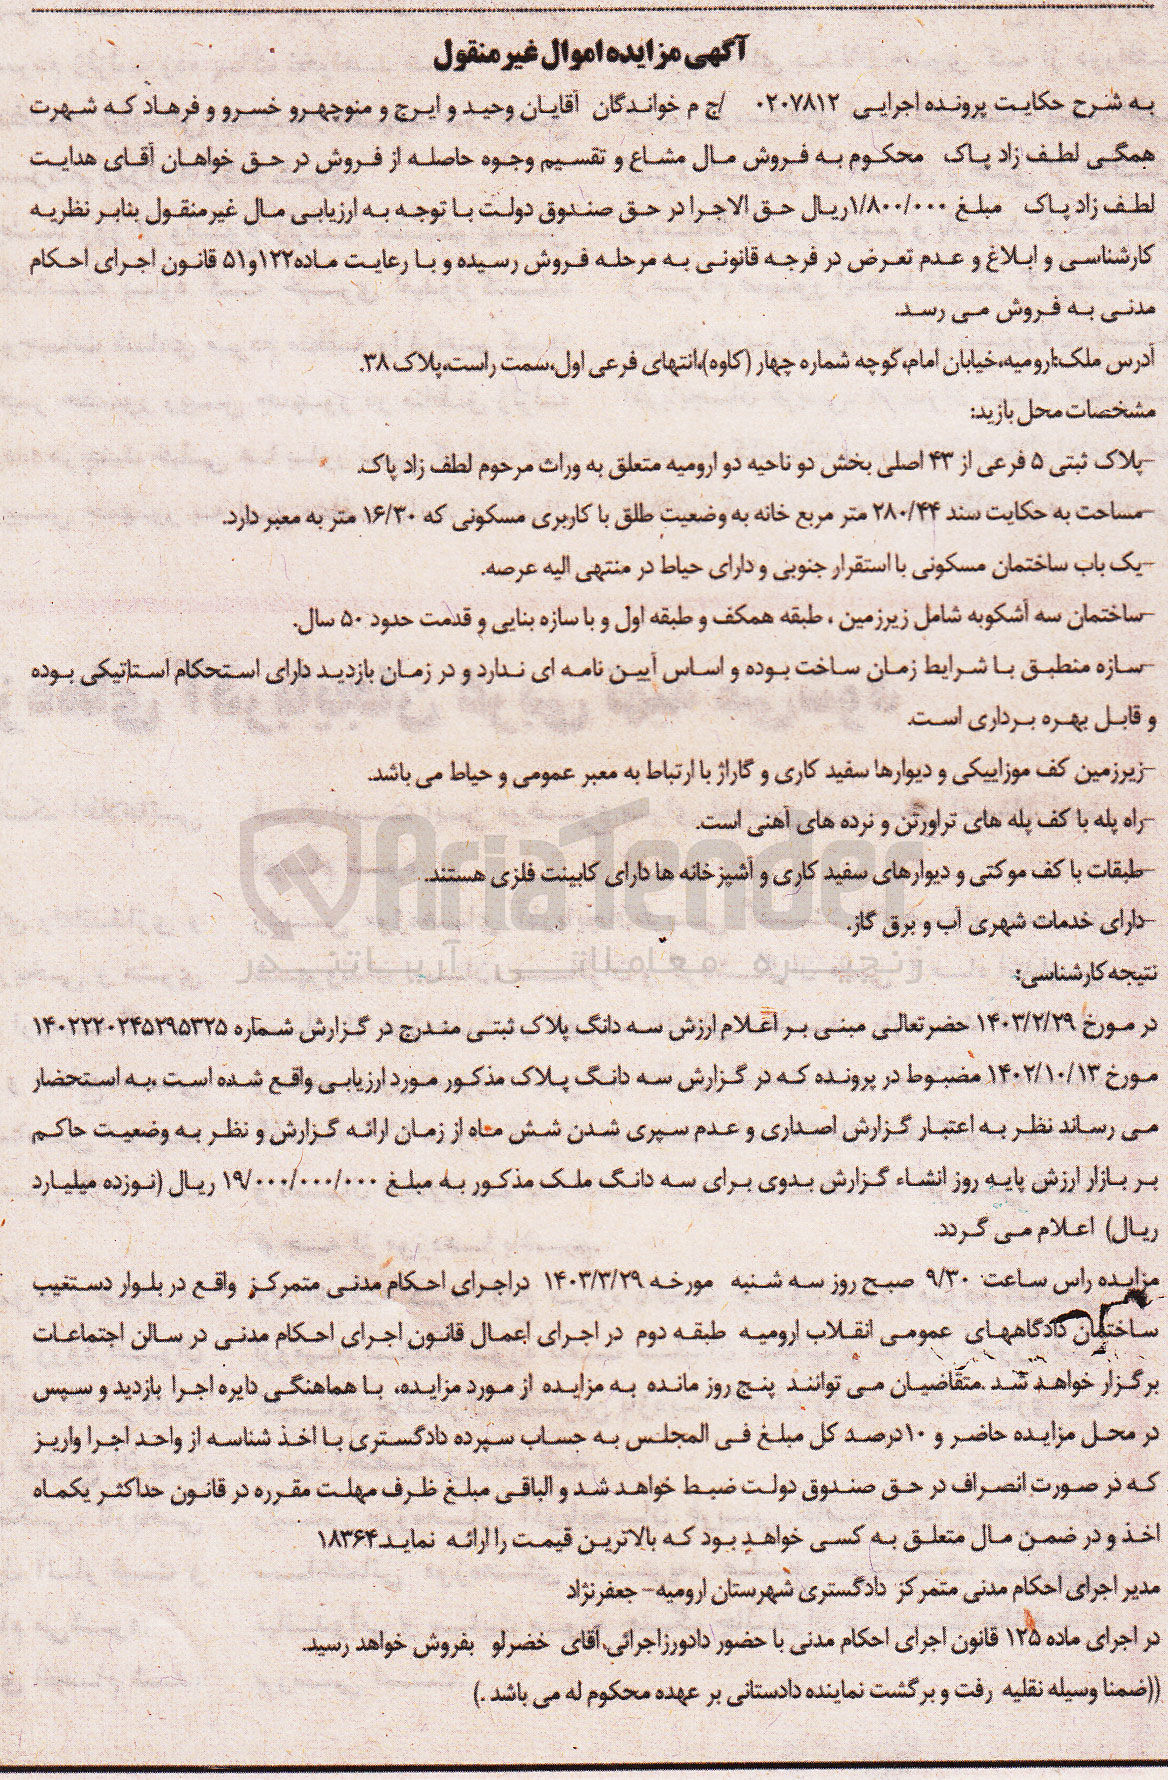 آگهی مزایده اموال غیر منقول
به شرح حکایت پرونده اجرایی ۰۲۰۷۸۱۲ /ج م خواندگان آقایان وحید و ایرج و منوچهرو خسرو و فرهاد که شهرت
همگی لطف زاد پاک محکوم به فروش مال مشاع و تقسیم وجوه حاصله از فروش در حق خواهان آقای هدایت
لطف زاد پاک مبلغ ۱/۸۰۰/۰۰۰ریال حق الاجرا در حق صندوق دولت با توجه به ارزیابی مال غیرمنقول بنابر نظریه
کارشناسی و ابلاغ و عدم تعرض در فرجه قانونی به مرحله فروش رسیده و با رعایت ماده۱۲۲و۵۱ قانون اجرای احکام
مدنی به فروش می رسد.
آدرس ملک:ارومیه،خیابان امام،کوچه شماره چهار (کاوه)،انتهای فرعی اول،سمت راست،پلاک ۳۸.
مشخصات محل بازید:
-پلاک ثبتی ۵ فرعی از ۴۳ اصلی بخش دو ناحیه دو ارومیه متعلق به وراث مرحوم لطف زاد پاک.
-مساحت به حکایت سند ۲۸۰/۴۴ متر مربع خانه به وضعیت طلق با کاربری مسکونی که ۱۶/۳۰ متر به معبر دارد.
-یک باب ساختمان مسکونی با استقرار جنوبی و دارای حیاط در منتهی الیه عرصه.
-ساختمان سه آشکوبه شامل زیرزمین ، طبقه همکف و طبقه اول و با سازه بنایی و قدمت حدود ۵۰ سال.
-سازه منطبق با شرایط زمان ساخت بوده و اساس آیین نامه ای ندارد و در زمان بازدید دارای استحکام استاتیکی بوده
و قابل بهره برداری است.
-زیرزمین کف موزاییکی و دیوارها سفید کاری و گاراژ با ارتباط به معبر عمومی و حیاط می باشد.
-راه پله با کف پله های تراورتن و نرده های آهنی است.
-طبقات با کف موکتی و دیوارهای سفید کاری و آشپزخانه ها دارای کابینت فلزی هستند.
-دارای خدمات شهری آب و برق گاز.
AriaTender
نتیجه کارشناسی:
در مورخ ۱۴۰۳/۲/۲۹ حضرتعالی مبنی بر اعلام ارزش سه دانگ پلاک ثبتی مندرج در گزارش شماره ۱۴۰۲۲۲۰۲۴۵۲۹۵۳۲۵
مورخ ۱۴۰۲/۱۰/۱۳ مضبوط در پرونده که در گزارش سه دانگ پلاک مذکور مورد ارزیابی واقع شده است ،به استحضار
می رساند نظر به اعتبار گزارش اصداری و عدم سپری شدن شش ماه از زمان ارائه گزارش و نظر به وضعیت حاکم
بر بازار ارزش پایه روز انشاء گزارش بدوی برای سه دانگ ملک مذکور به مبلغ ۱۹/۰۰۰/۰۰۰/۰۰۰ ریال (نوزده میلیارد
ریال) اعلام می گردد.
مزایده راس ساعت ۹/۳۰ صبح روز سه شنبه مورخه ۱۴۰۳/۳/۲۹ دراجرای احکام مدنی متمرکز واقع در بلوار دستغیب
ساختمان دادگاههای عمومی انقلاب ارومیه طبقه دوم در اجرای اعمال قانون اجرای احکام مدنی در سالن اجتماعات
برگزار خواهد شد .متقاضیان می توانند پنج روز مانده به مزایده از مورد مزایده، با هماهنگی دایره اجرا بازدید و سپس
در محل مزایده حاضر و ۱۰درصد کل مبلغ فی المجلس به حساب سپرده دادگستری با اخذ شناسه از واحد اجرا واریز
که در صورت انصراف در حق صندوق دولت ضبط خواهد شد و الباقی مبلغ ظرف مهلت مقرره در قانون حداکثر یکماه
اخذ و در ضمن مال متعلق به کسی خواهد بود که بالاترین قیمت را ارائه نماید.۱۸۳۶۴
مدیر اجرای احکام مدنی متمرکز دادگستری شهرستان ارومیه- جعفرنژاد
در اجرای ماده ۱۲۵ قانون اجرای احکام مدنی با حضور دادورزاجرائی،آقای خضرلو بفروش خواهد رسید.
((ضمنا وسیله نقلیه رفت و برگشت نماینده دادستانی بر عهده محکوم له می باشد .)